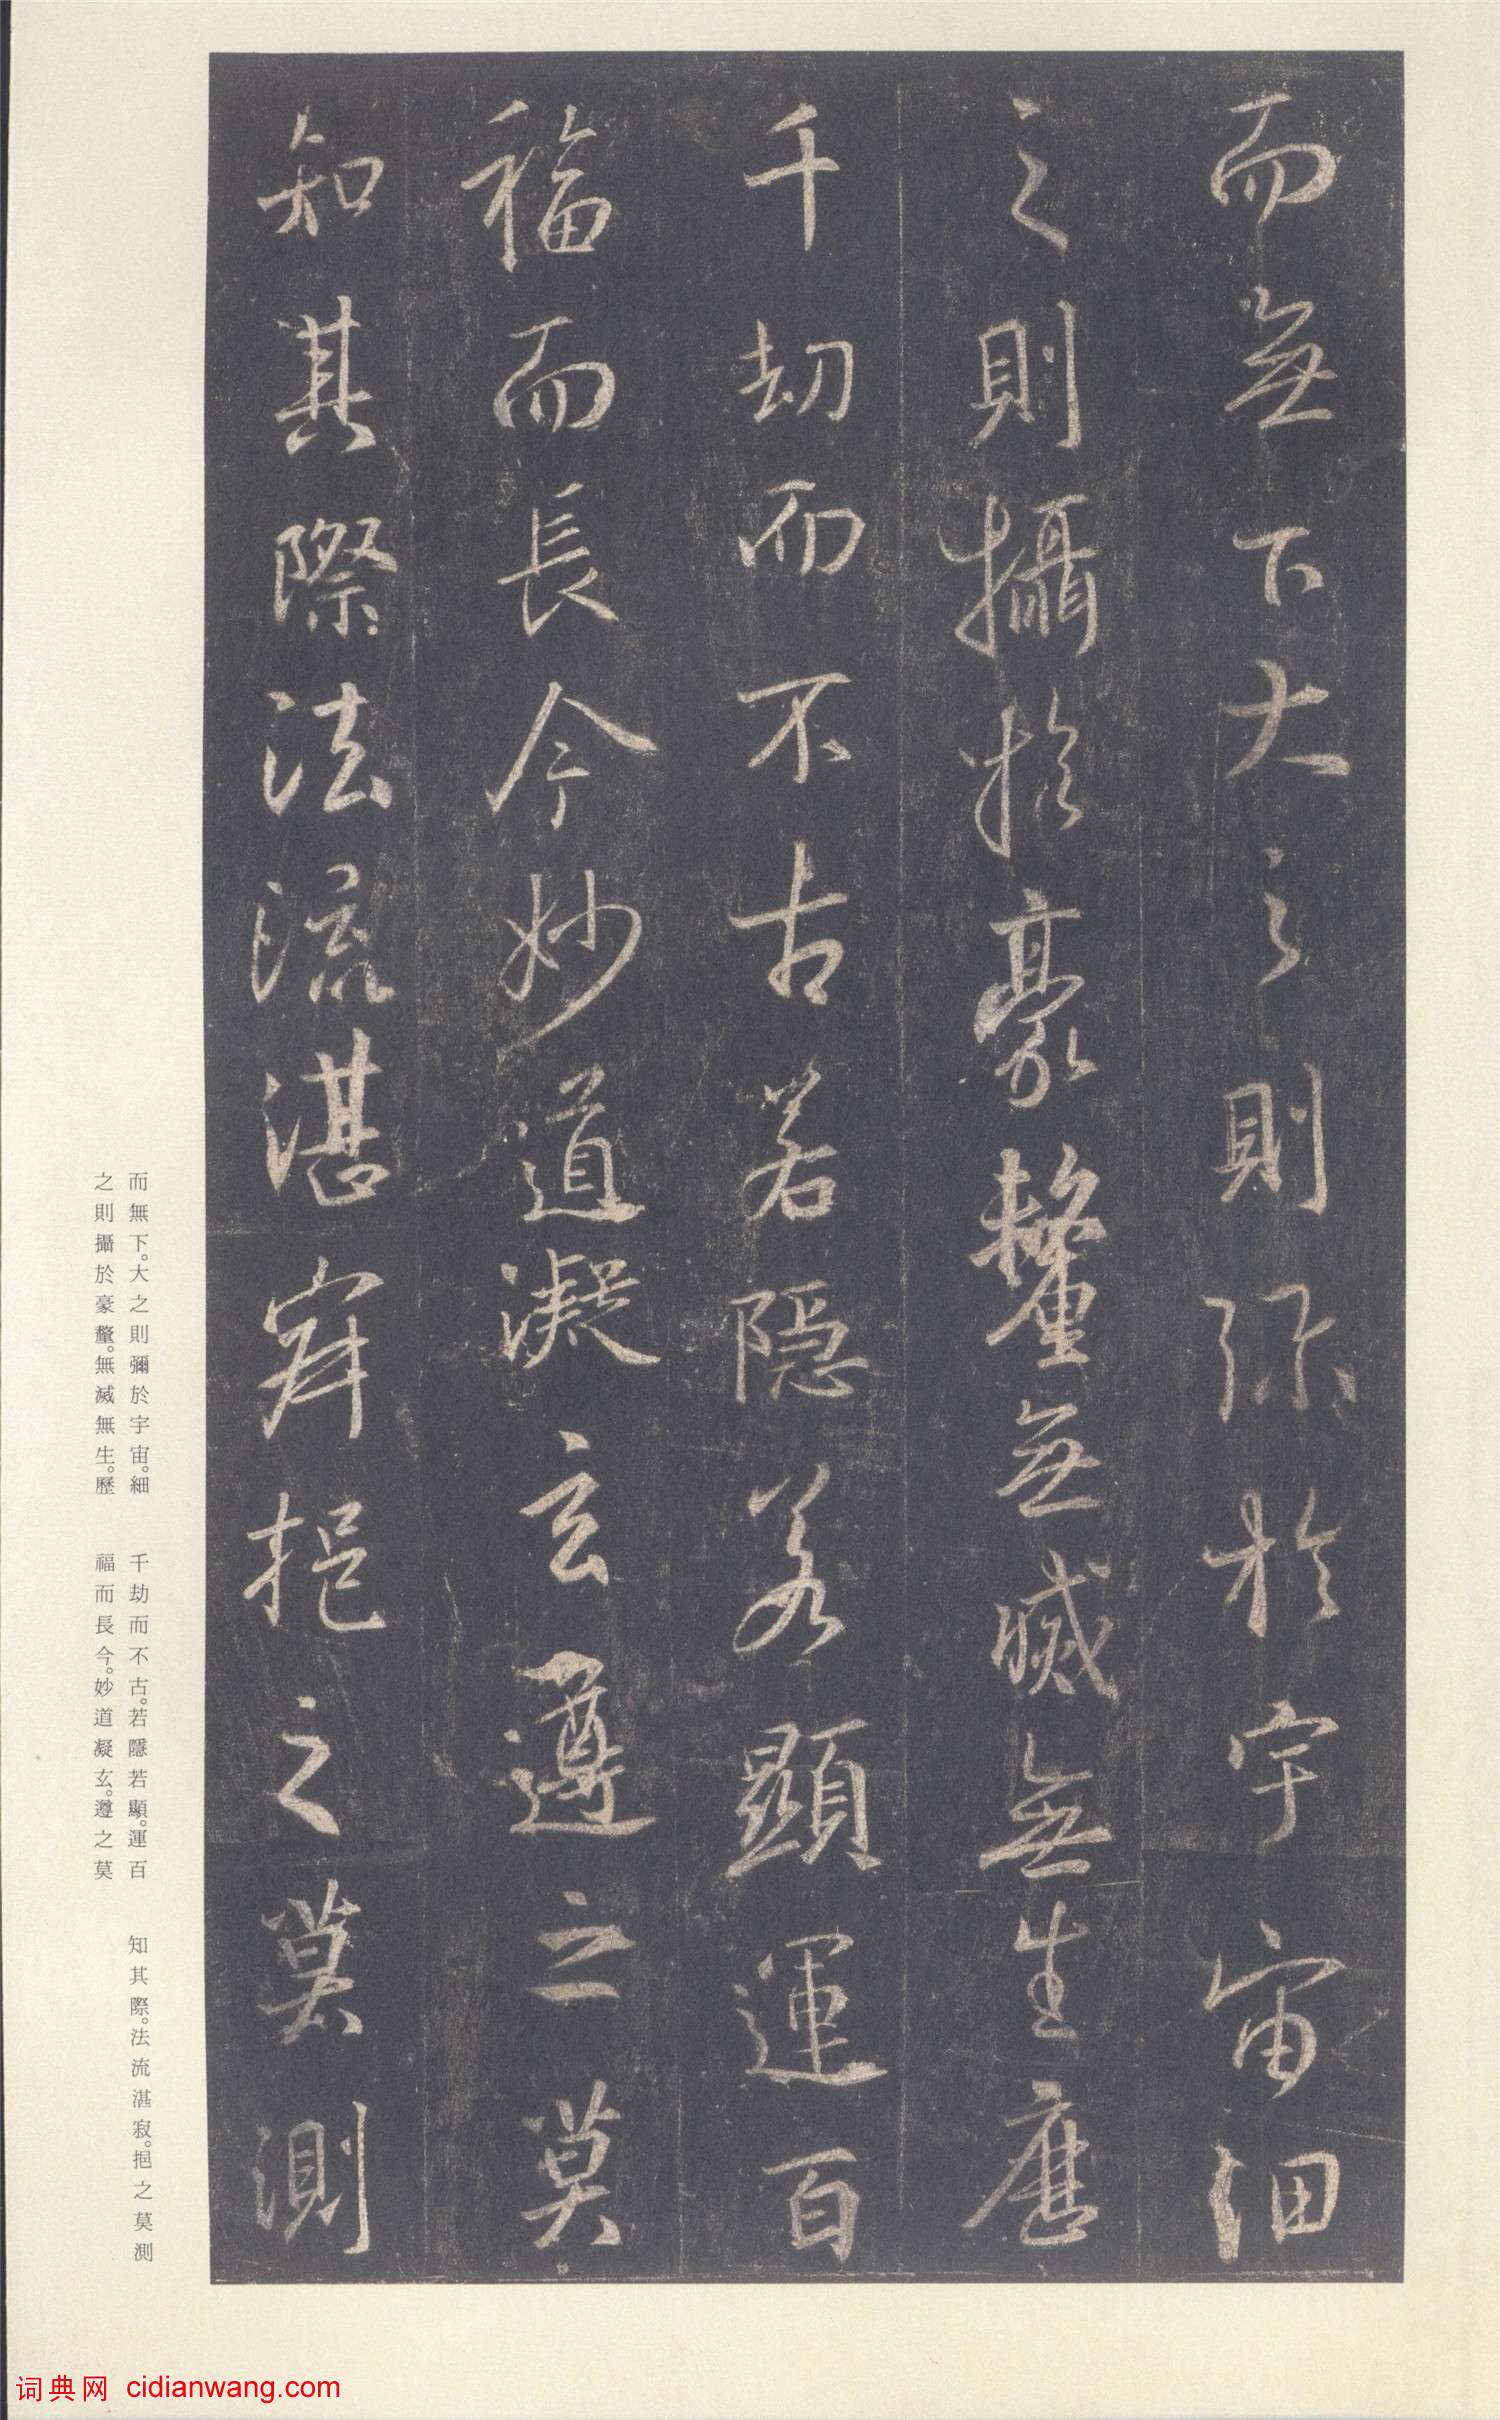 而無下大之則弥於宇宙細
之則攝於豪氂無滅無生歷
千劫而不古若隱若顯運百
福而長今妙道凝玄遵之莫
知其際法流湛寂挹之莫測
而無下。大之則彌於宇宙。細
之則攝於豪氂。無滅無生。歷
千劫而不古。若隱若顯。運百
福而長今。妙道凝玄。遵之莫
知其際。法流湛寂。挹之莫測
词典网 cidianwang.com